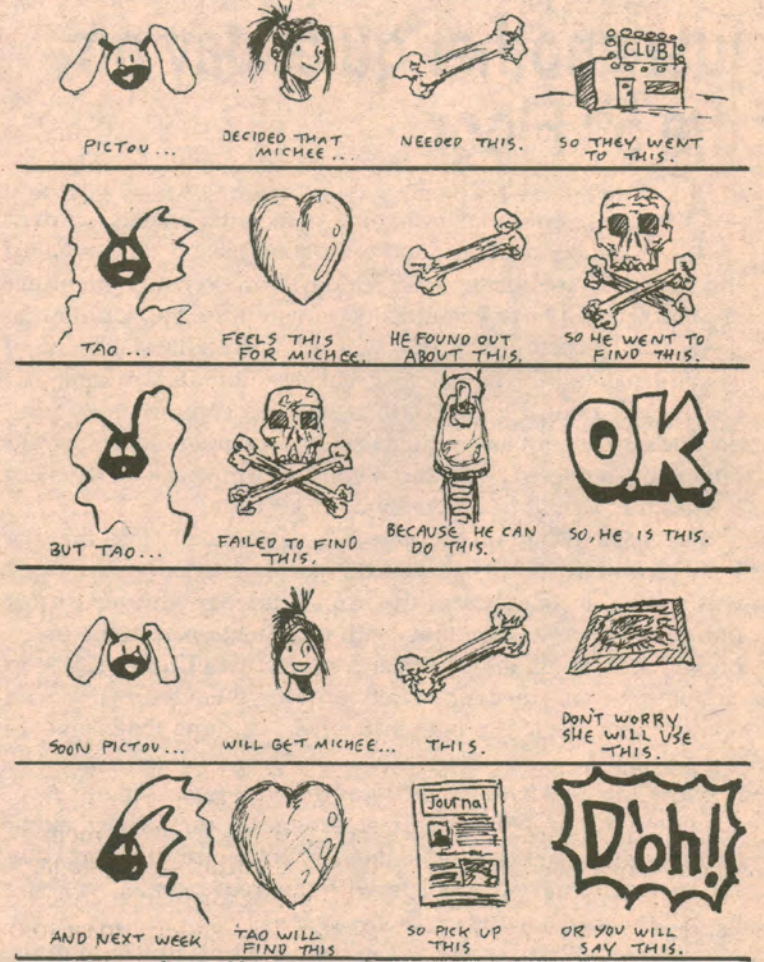 CLUB
PICTOU...
DECIDED THAT
MICHEE...
NEEDED THIS.
SO THEY WENT
TO THIS.
TAO...
FEELS THIS
FOR MICHEE.
HE FOUND OUT
ABOUT THIS.
SO HE WENT TO
FIND THIS.
O.K.
BUT TAO...
FAILED TO FIND
THIS.
BECAUSE HE CAN
DO THIS.
SO, HE IS THIS.
SOON PICTOU...
WILL GET MICHEE...
THIS.
DON'T WORRY,
SHE WILL USE
THIS.
Journal
D'oh!
AND NEXT WEEK
TAO WILL
FIND THIS
SO PICK UP
THIS
OR YOU WILL
SAY THIS.